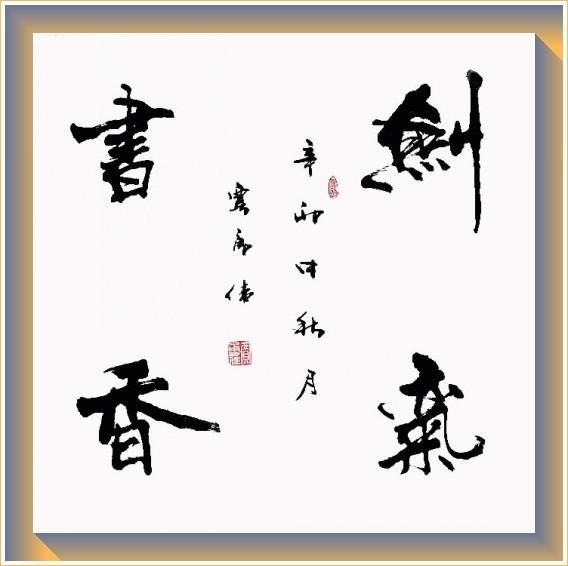 劍氣
書香
辛卯中秋月